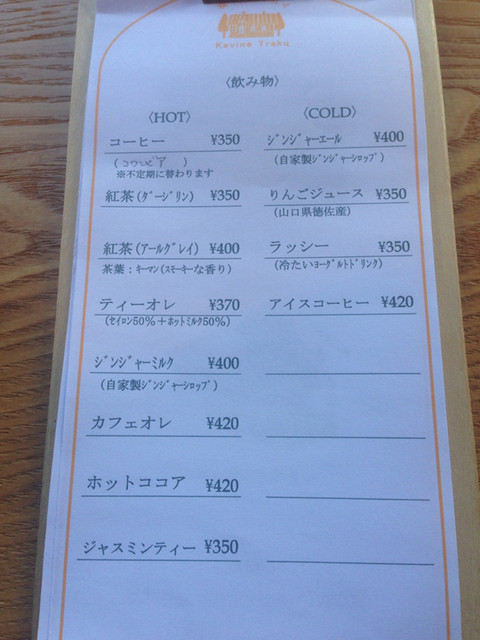 Kavine Traku
〈飲み物〉
〈HOT〉
コーヒー ¥350
(コロンビア)
※不定期に替わります
紅茶(ﾀﾞｰｼﾞﾘﾝ) ¥350
紅茶(ｱｰﾙｸﾞﾚｲ) ¥400
茶葉：ｷｰﾏﾝ(ｽﾓｰｷｰな香り)
ティーオレ ¥370
(ｾｲﾛﾝ50％＋ﾎｯﾄﾐﾙｸ50％)
ｼﾞﾝｼﾞｬｰﾐﾙｸ ¥400
(自家製ｼﾞﾝｼﾞｬｰｼﾛｯﾌﾟ)
カフェオレ ¥420
ホットココア ¥420
ジャスミンティー ¥350
〈COLD〉
ｼﾞﾝｼﾞｬｰｴｰﾙ ¥400
(自家製ｼﾞﾝｼﾞｬｰｼﾛｯﾌﾟ)
りんごジュース ¥350
(山口県徳佐産)
ラッシー ¥350
(冷たいﾖｰｸﾞﾙﾄﾄﾞﾘﾝｸ)
アイスコーヒー ¥420